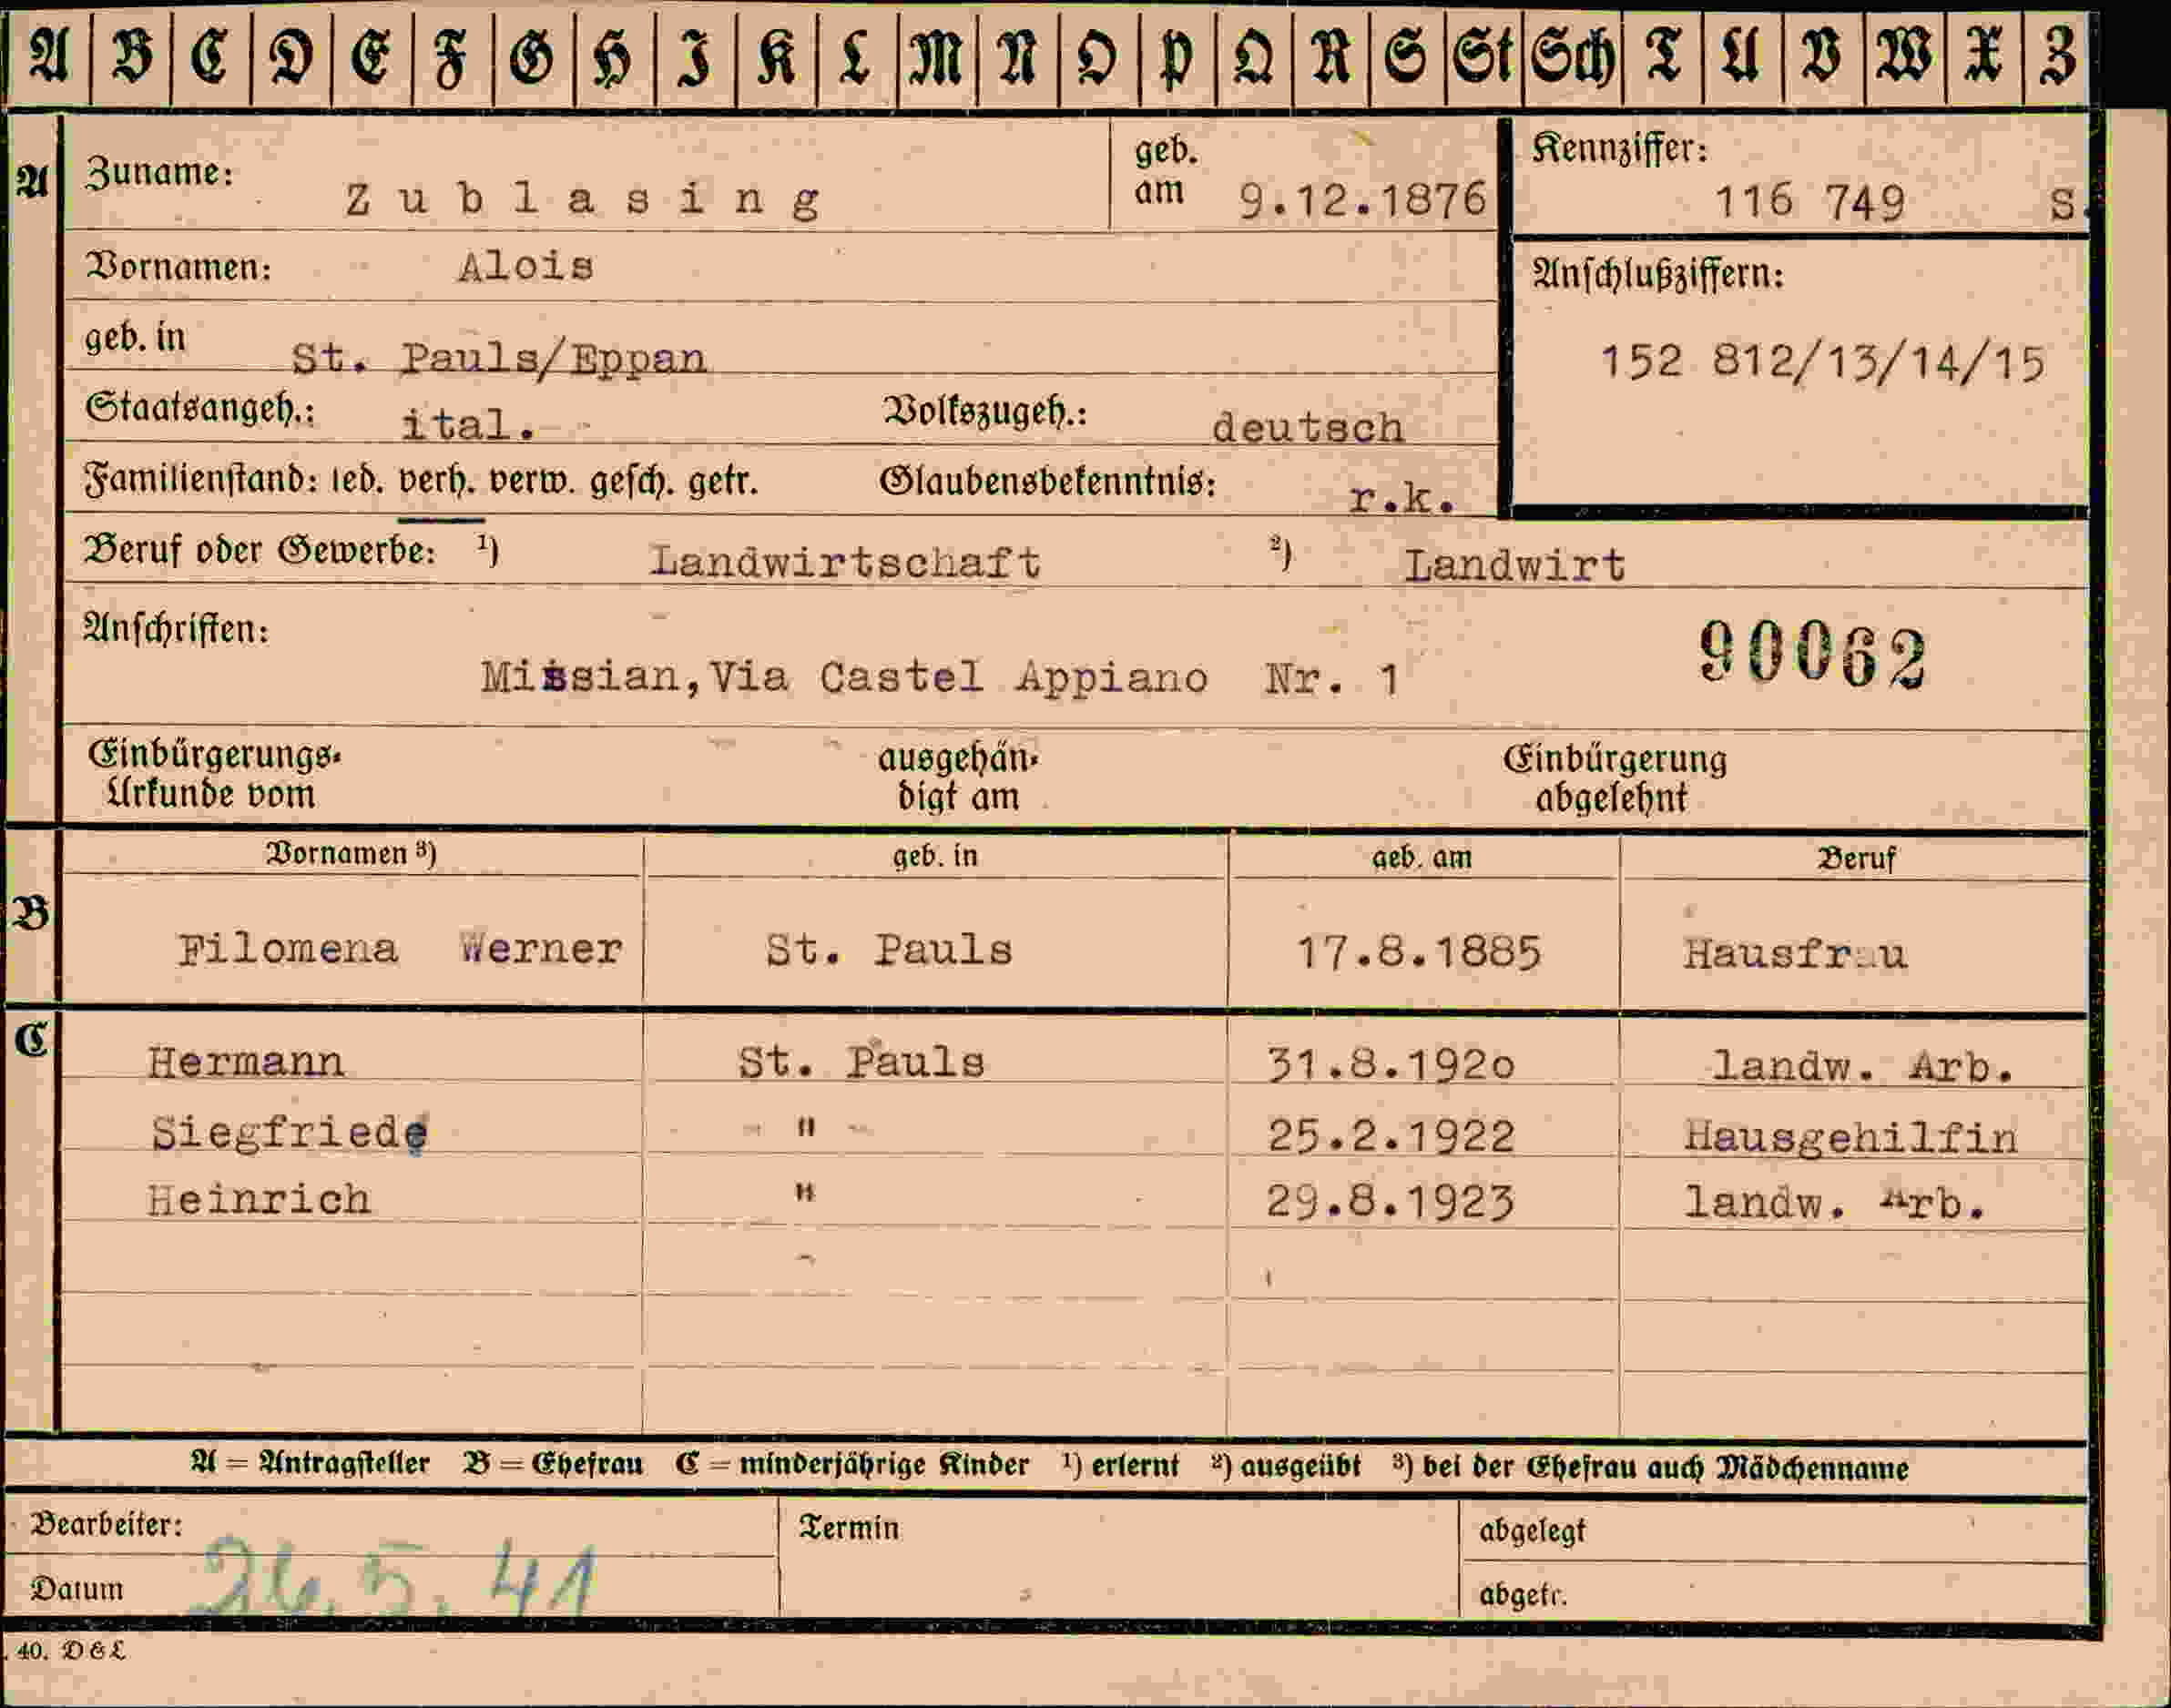 A B C D E F G H I K L M N O P Q R S St Sch T U V W X Z
A
Zuname: Zublasing geb. am 9.12.1876 Kennziffer: 116 749 S.
Vornamen: Alois
Anschlußziffern:
geb. in St. Pauls/Eppan
152 812/13/14/15
Staatsangeh.: ital. Volkszugeh.: deutsch
Familienstand: led. verh. verw. gesch. getr. Glaubensbekenntnis: r.k.
Beruf oder Gewerbe: ¹) Landwirtschaft ²) Landwirt
Anschriften:
Missian,Via Castel Appiano Nr. 1 90062
Einbürgerungs- ausgehän- Einbürgerung
Urkunde vom digt am abgelehnt
Vornamen ³) geb. in geb. am Beruf
B
Filomena Werner St. Pauls 17.8.1885 Hausfrau
C
Hermann St. Pauls 31.8.192o landw. Arb.
Siegfriede " 25.2.1922 Hausgehilfin
Heinrich " 29.8.1923 landw. Arb.
A = Antragsteller B = Ehefrau C = minderjährige Kinder ¹) erlernt ²) ausgeübt ³) bei der Ehefrau auch Mädchenname
Bearbeiter: Termin abgelegt
Datum 26.5.41 abgetr.
40. D&L